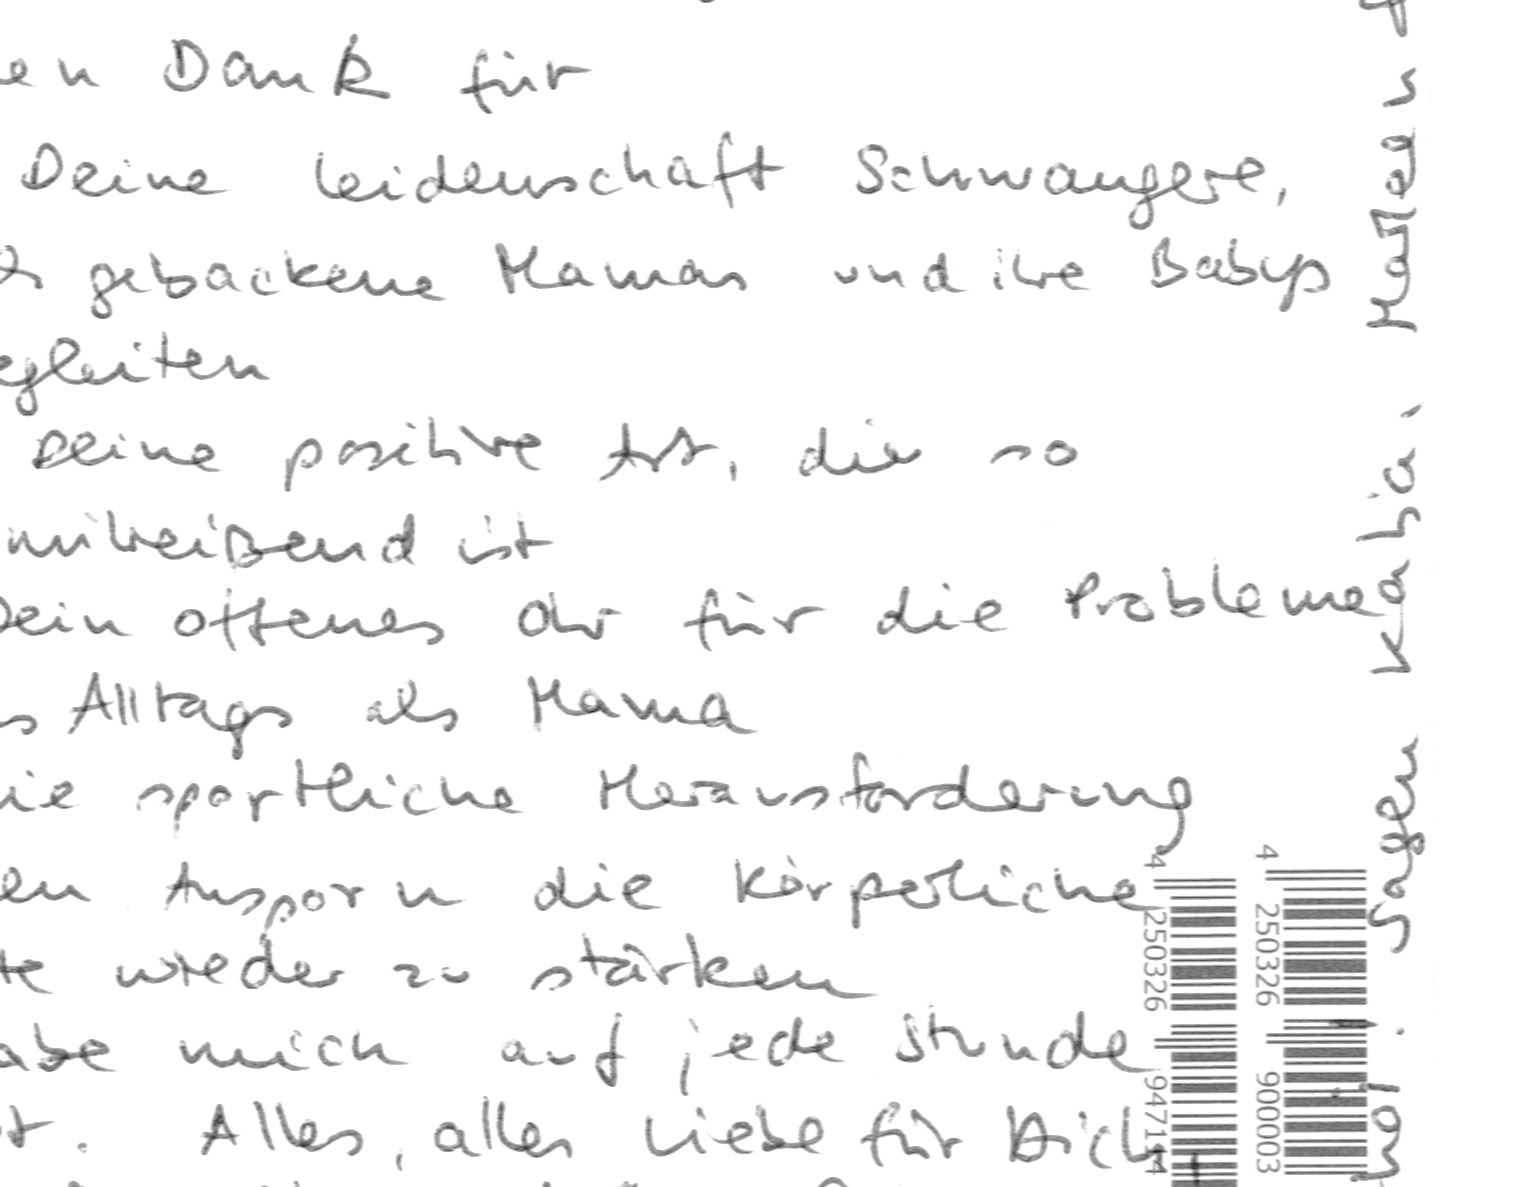 en Dank für
Deine Leidenschaft Schwangere,
gebackene Mamas und ihre Babys
egleiten
Deine positive Art, die so
mitreißend ist
Dein offenes Ohr für die Probleme
s Alltags als Mama
ie sportliche Herausforderung
en Ansporn die körperliche
te wieder zu stärken
abe mich auf jede Stunde
t. Alles, alles Liebe für Dich
mal. Sagen Katja, Mattea &
4 250326 947114
4 250326 900003